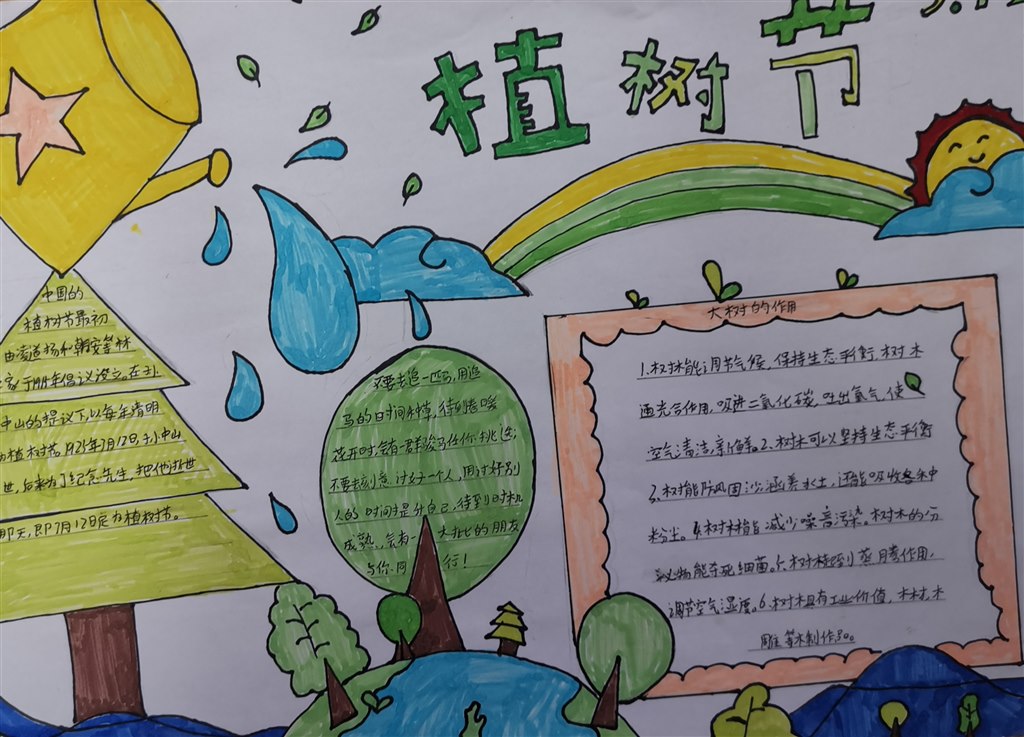 植树节
3.12
中国的
植树节最初
由凌道扬和韩安等林
家于1915年倡议设立。在孙
中山的提议下,以每年清明
为植树节。1925年3月12日,孙中山
世,后来为了纪念先生,把他逝世
那天,即3月12日定为植树节。
不要去追一匹马,用追
马的时间种草,待到春暖
花开时,会有一群骏马任你挑选;
不要去刻意讨好一个人,用讨好别
人的时间提升自己,待到时机
成熟,会有一大批的朋友
与你同行!
大树的作用
1.树林能调节气候,保持生态平衡,树木
通光合作用,吸进二氧化碳,吐出氧气,使
空气清洁,新鲜。2.树木可以坚持生态平衡
3.树能防风固沙,涵养水土,还能吸收各种
粉尘。4.树林能减少噪音污染。树木的分
泌物能杀死细菌。5.树林蒸腾作用,
调节空气湿度。6.树木具有工业价值,木材,木
雕等木制作品。